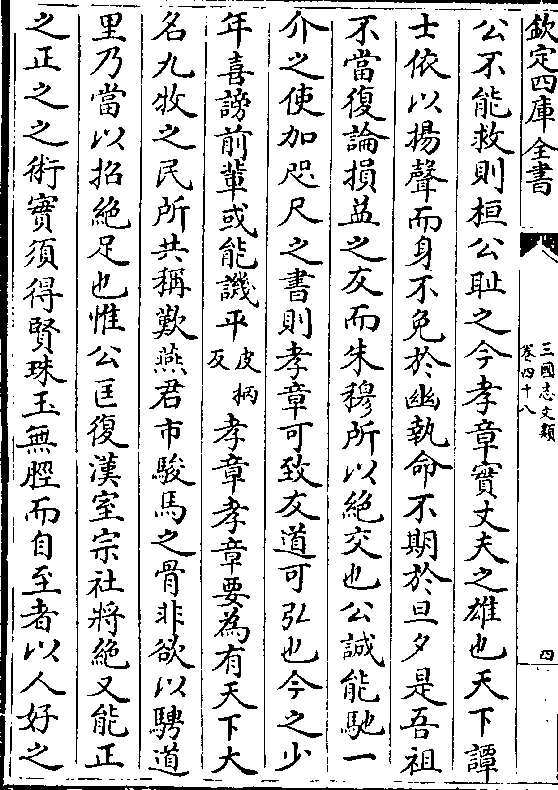 欽定四庫全書
三國志文類
卷四十八
四
公不能救則桓公耻之今孝章實丈夫之雄也天下譚
士依以揚聲而身不免於幽執命不期於旦夕是吾祖
不當復論損益之友而朱穆所以絶交也公誠能馳一
介之使加咫尺之書則孝章可致友道可弘也今之少
年喜謗前輩或能譏平皮柄反孝章孝章要為有天下大
名九牧之民所共稱歎燕君市駿馬之骨非欲以騁道
里乃當以招絶足也惟公匡復漢室宗社將絶又能正
之正之之術實須得賢珠玉無脛而自至者以人好之